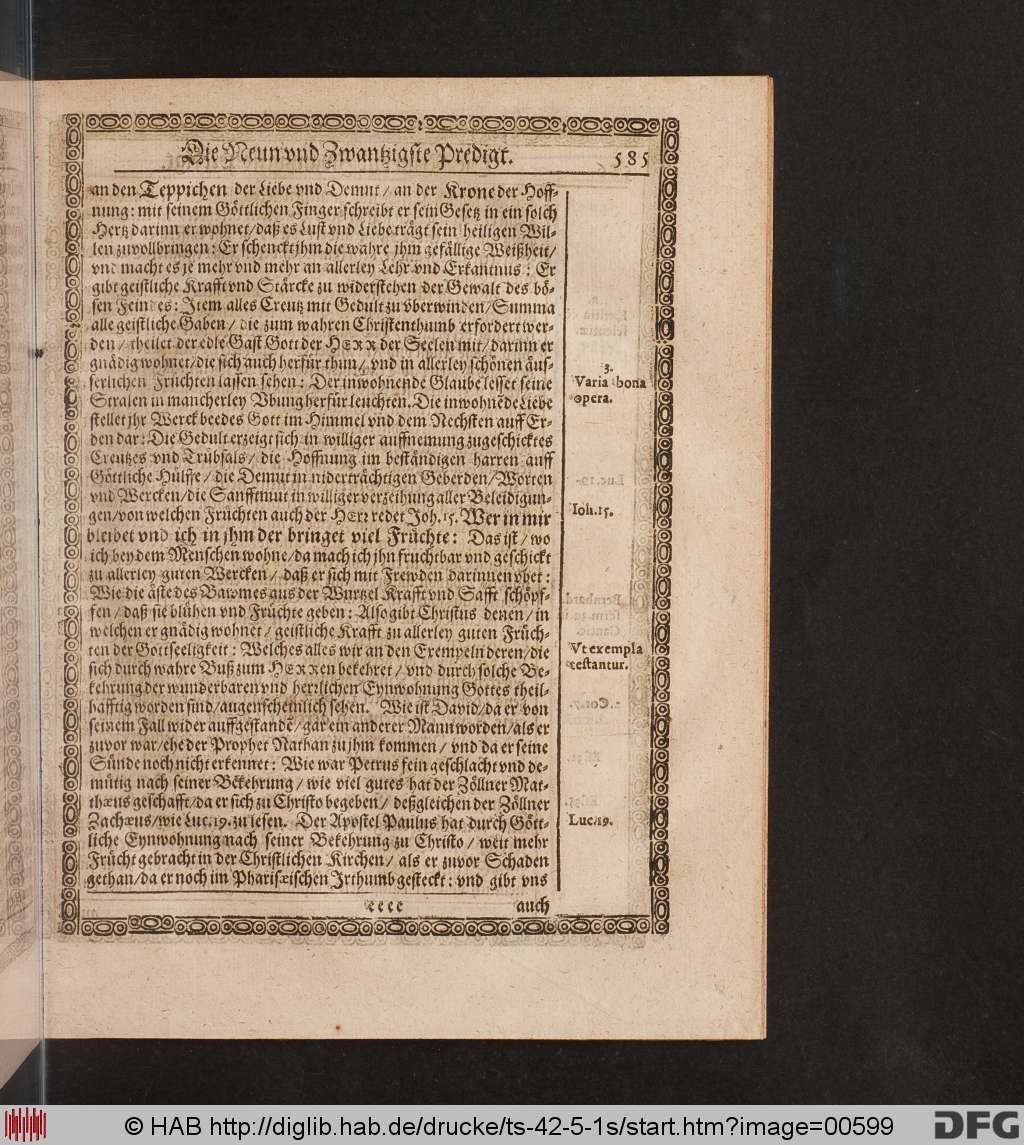 Die Neun vnd Zwantzigste Predigt. 585
an den Teppichen der Liebe vnd Demut / an der Krone der Hoff-
nung: mit seinem Göttlichen Finger schreibt er sein Gesetz in ein solch
Hertz darinn er wohnet/daß es Lust vnd Liebe trägt sein heiligen Wil-
len zuvollbringen: Er schenckt jhm die wahre jhm gefällige Weißheit/
vnd macht es je mehr vnd mehr an allerley Lehr vnd Erkantnus: Er
gibt geistliche Krafft vnd Stärcke zu widerstehen der Gewalt des bö-
sen Feindes: Item alles Creutz mit Gedult zu vberwinden/Summa
alle geistliche Gaben / die zum wahren Christenthumb erfordert wer-
den / theilet der edle Gast Gott der HERR der Seelen mit/darinn er
gnädig wohnet/die sich auch herfür thun/ vnd in allerley schönen äus-
serlichen Früchten lassen sehen: Der inwohnende Glaube lesset seine
Stralen in mancherley Vbung herfür leuchten. Die inwohnẽde Liebe
stellet jhr Werck beedes Gott im Himmel vnd dem Nechsten auff Er-
den dar: Die Gedult erzeigt sich in williger auffnemung zugeschicktes
Creutzes vnd Trübsals/ die Hoffnung im beständigen harren auff
Göttliche Hülffe / die Demut in niderträchtigen Geberden/Worten
vnd Wercken/die Sanfftmut in williger verzeihung aller Beleidigun-
gen/von welchen Früchten auch der HErr redet Joh. 15. Wer in mir
bleibet vnd ich in jhm der bringet viel Früchte: Das ist / wo
ich bey dem Menschen wohne/da mach ich jhn fruchtbar vnd geschickt
zu allerley guten Wercken / daß er sich mit Frewden darinnen vbet:
Wie die äste des Bawmes aus der Wurtzel Krafft vnd Safft schöpf-
fen / daß sie blühen vnd Früchte geben: Also gibt Christus denen / in
welchen er gnädig wohnet / geistliche Krafft zu allerley guten Früch-
ten der Gottseeligkeit: Welches alles wir an den Exempeln deren/die
sich durch wahre Buß zum HERREN bekehret / vnd durch solche Be-
kehrung der wunderbaren vnd herrlichen Eynwohnung Gottes theil-
hafftig worden sind/augenscheinlich sehen. Wie ist David/da er von
seinem Fall wider auffgestandẽ/ gar ein anderer Mann worden/als er
zuvor war/ehe der Prophet Nathan zu jhm kommen / vnd da er seine
Sünde noch nicht erkennet: Wie war Petrus fein geschlacht vnd de-
mütig nach seiner Bekehrung / wie viel gutes hat der Zöllner Mat-
thæus geschafft/da er sich zu Christo begeben/ deßgleichen der Zöllner
Zachæus/wie Luc. 19. zu lesen. Der Apostel Paulus hat durch Gött-
liche Eynwohnung nach seiner Bekehrung zu Christo / weit mehr
Frücht gebracht in der Christlichen Kirchen / als er zuvor Schaden
gethan/da er noch im Pharisæischen Irthumb gesteckt: vnd gibt vns
eeee auch
3.
Varia bona
opera.
Ioh. 15.
Vt exempla
testantur.
Luc. 19.
© HAB http://diglib.hab.de/drucke/ts-42-5-1s/start.htm?image=00599
DFG